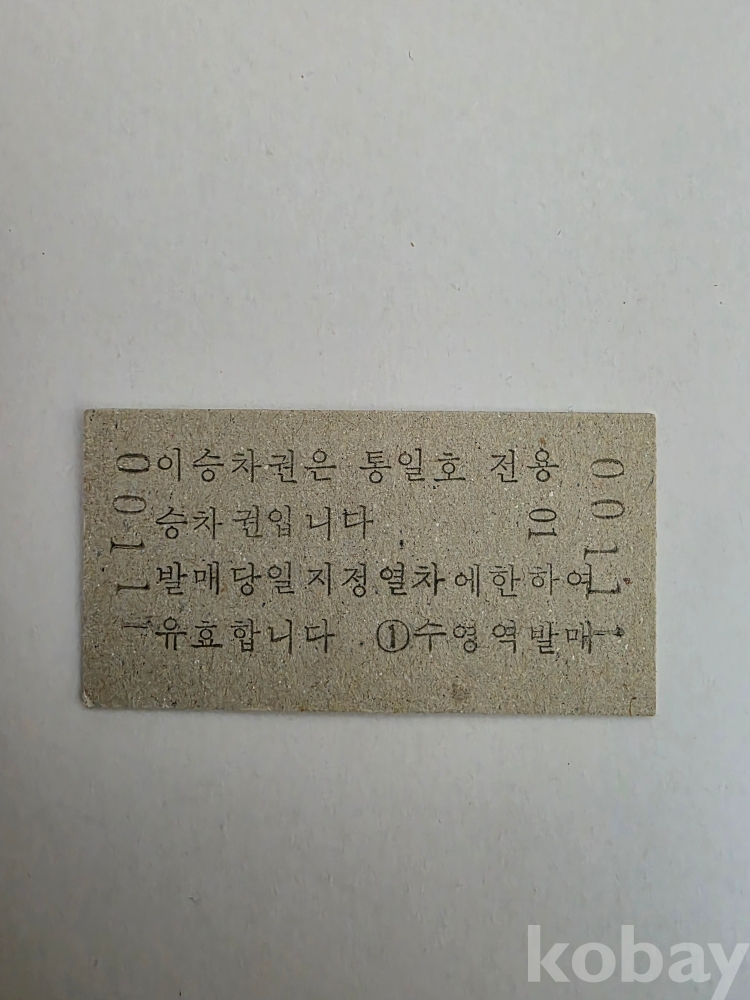 이승차권은 통일호 전용
승차권입니다
발매당일지정열차에한하여
유효합니다 ①수영역발매
0011
0011
01
kobay